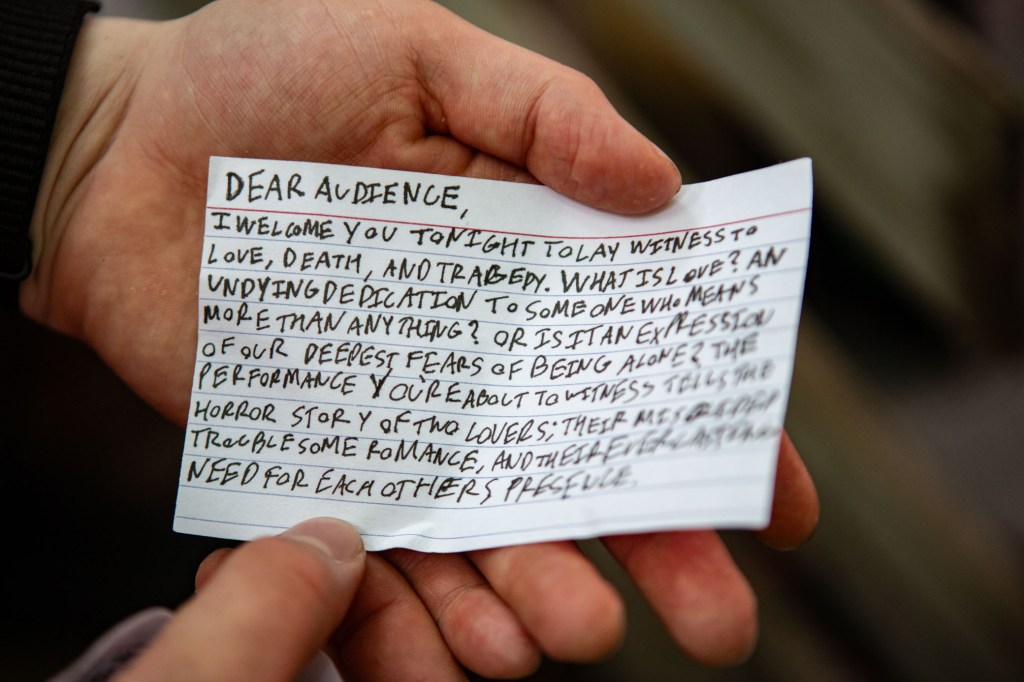 DEAR AUDIENCE,
I WELCOME YOU TONIGHT TO LAY WITNESS TO
LOVE, DEATH, AND TRAGEDY. WHAT IS LOVE? AN
UNDYING DEDICATION TO SOMEONE WHO MEANS
MORE THAN ANYTHING? OR IS IT AN EXPRESSION
OF OUR DEEPEST FEARS OF BEING ALONE? THE
PERFORMANCE YOU'RE ABOUT TO WITNESS TELLS THE
HORROR STORY OF TWO LOVERS; THEIR
TROUBLESOME ROMANCE, AND THEIR EVERLASTING
NEED FOR EACH OTHERS PRESENCE.